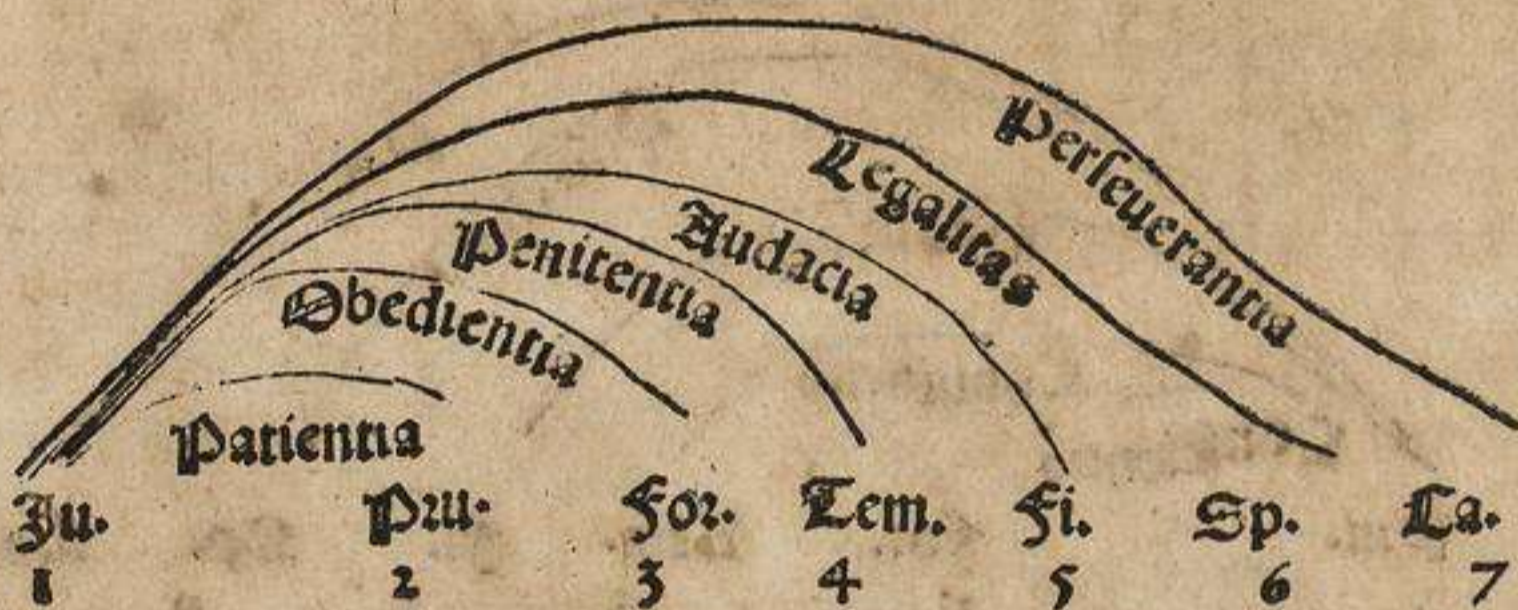 Perseuerantia
Legalitas
Audacia
Penitentia
Obedientia
Patientia
Ju. Pru. For. Tem. Fi. Sp. Ca.
1 2 3 4 5 6 7